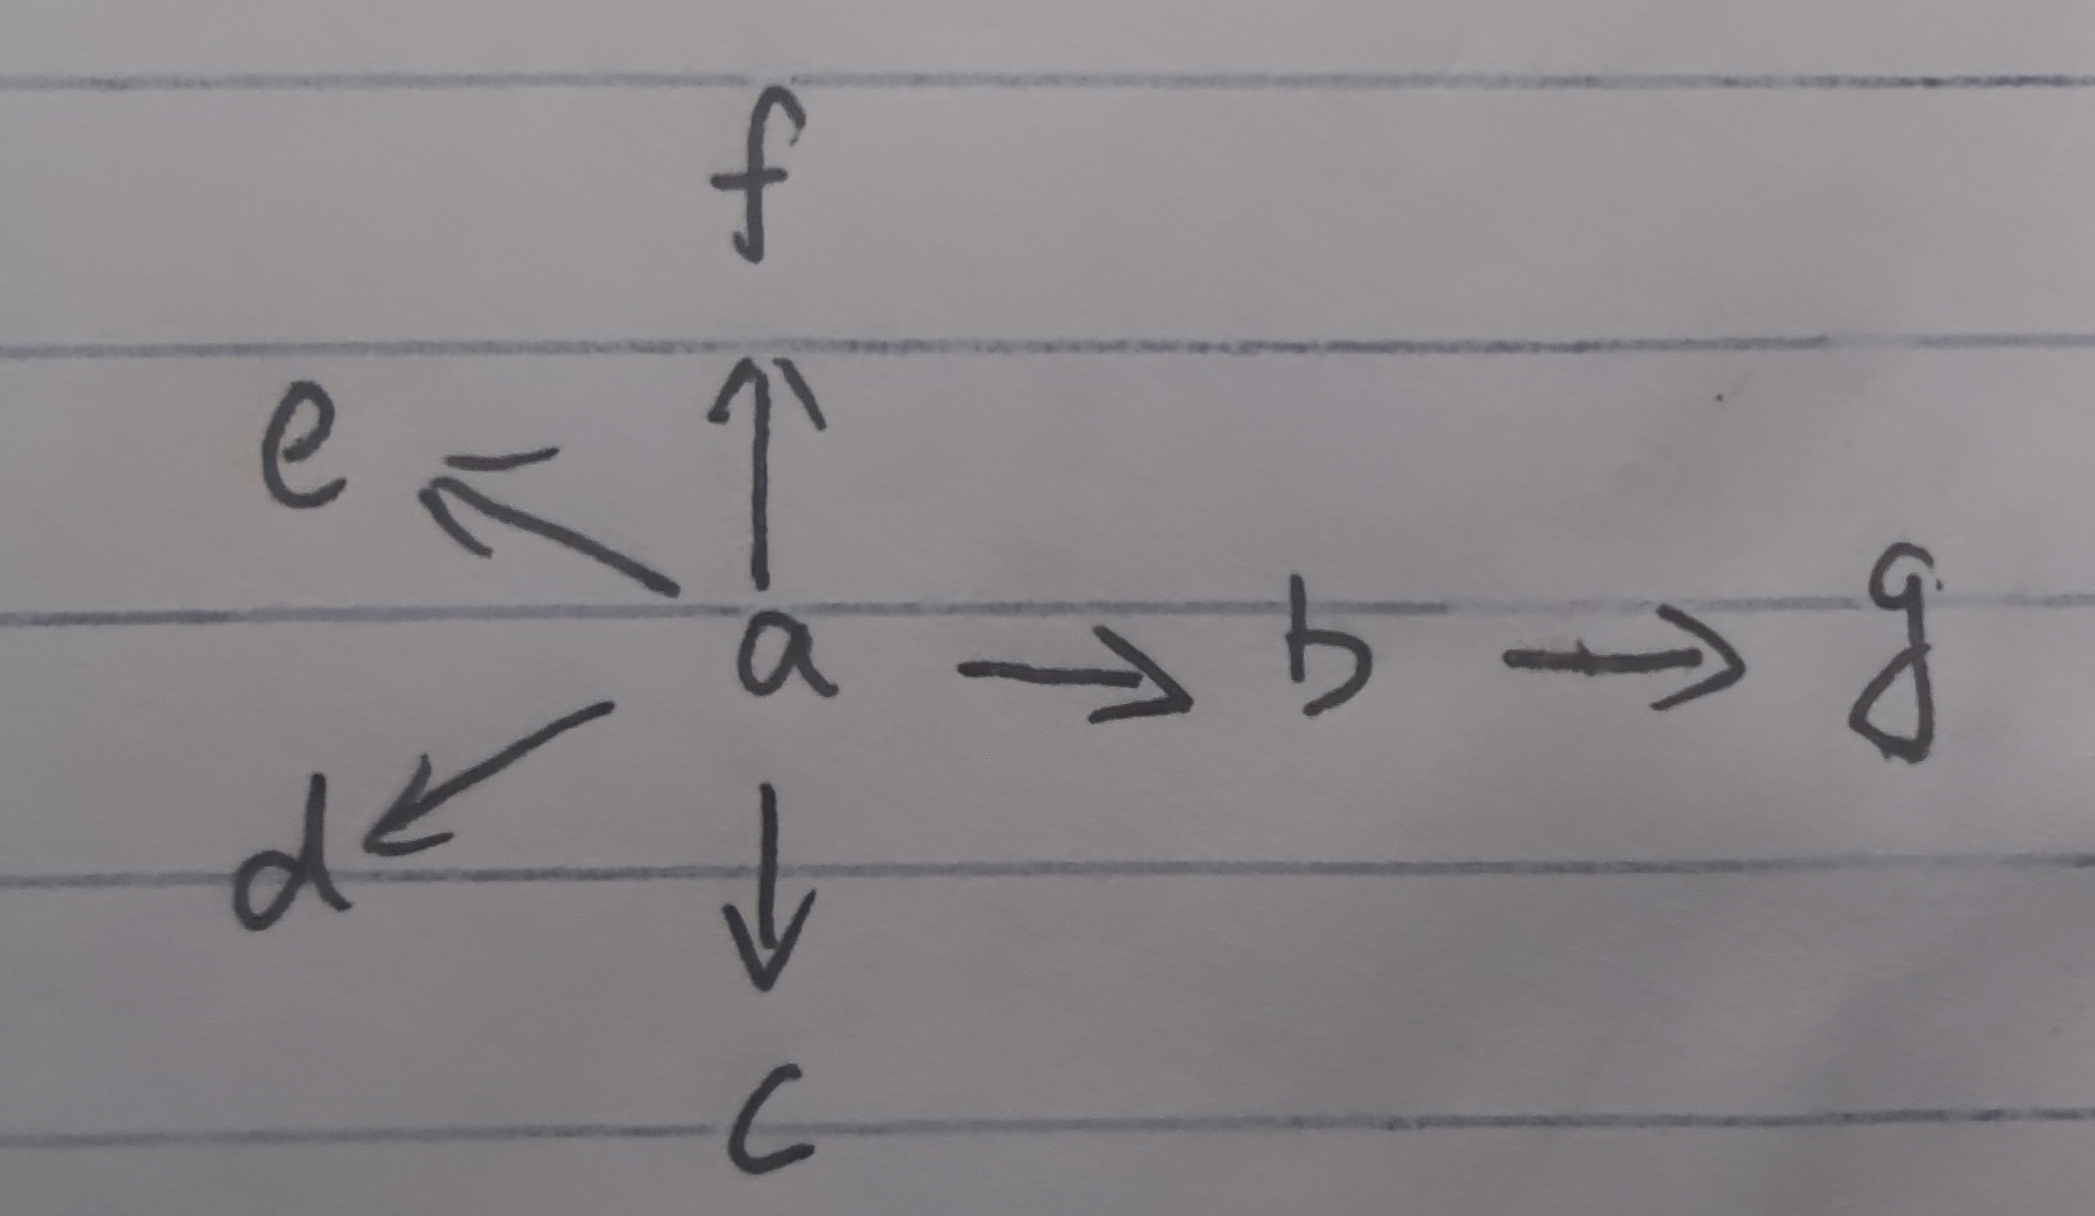 f
e
a → b → g
d
c